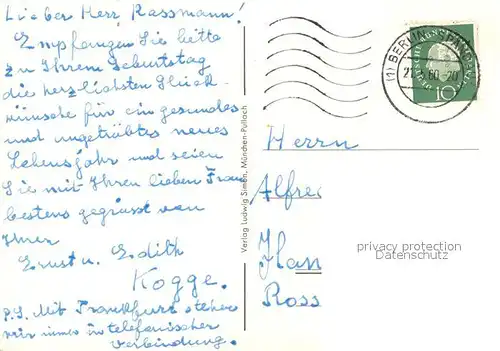 Lieber Herr Rassmann!
Empfangen Sie bitte
zu Ihrem Geburtstag
die herzlichsten Glück
wünsche für ein gesundes
und ungetrübtes neues
Lebensjahr und seien
Sie mit Ihrer lieben Frau
bestens gegrüsst von
Ihren
Ernst u. Edith
Kogge.
P.S. Mit Frankfurt stehen
wir immer in telefonischer
Verbindung.
Verlag Ludwig Simon, München-Pullach
(1) BERLIN
60-20
10
Herrn
Alfred
Han
Ross
privacy protection
Datenschutz